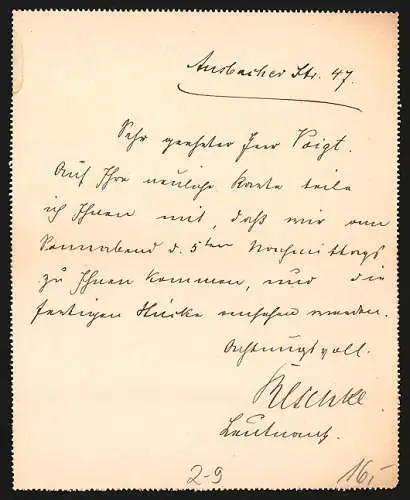 Ansbacher Str. 47.
Sehr geehrter Herr Voigt.
Auf Ihre neuliche Karte teile
ich Ihnen mit, daß wir am
Sonnabend d. 5ten Nachmittags
zu Ihnen kommen, und die
fertigen Stücke ansehen werden.
Achtungsvoll.
Leutnant.
2-9
16,-